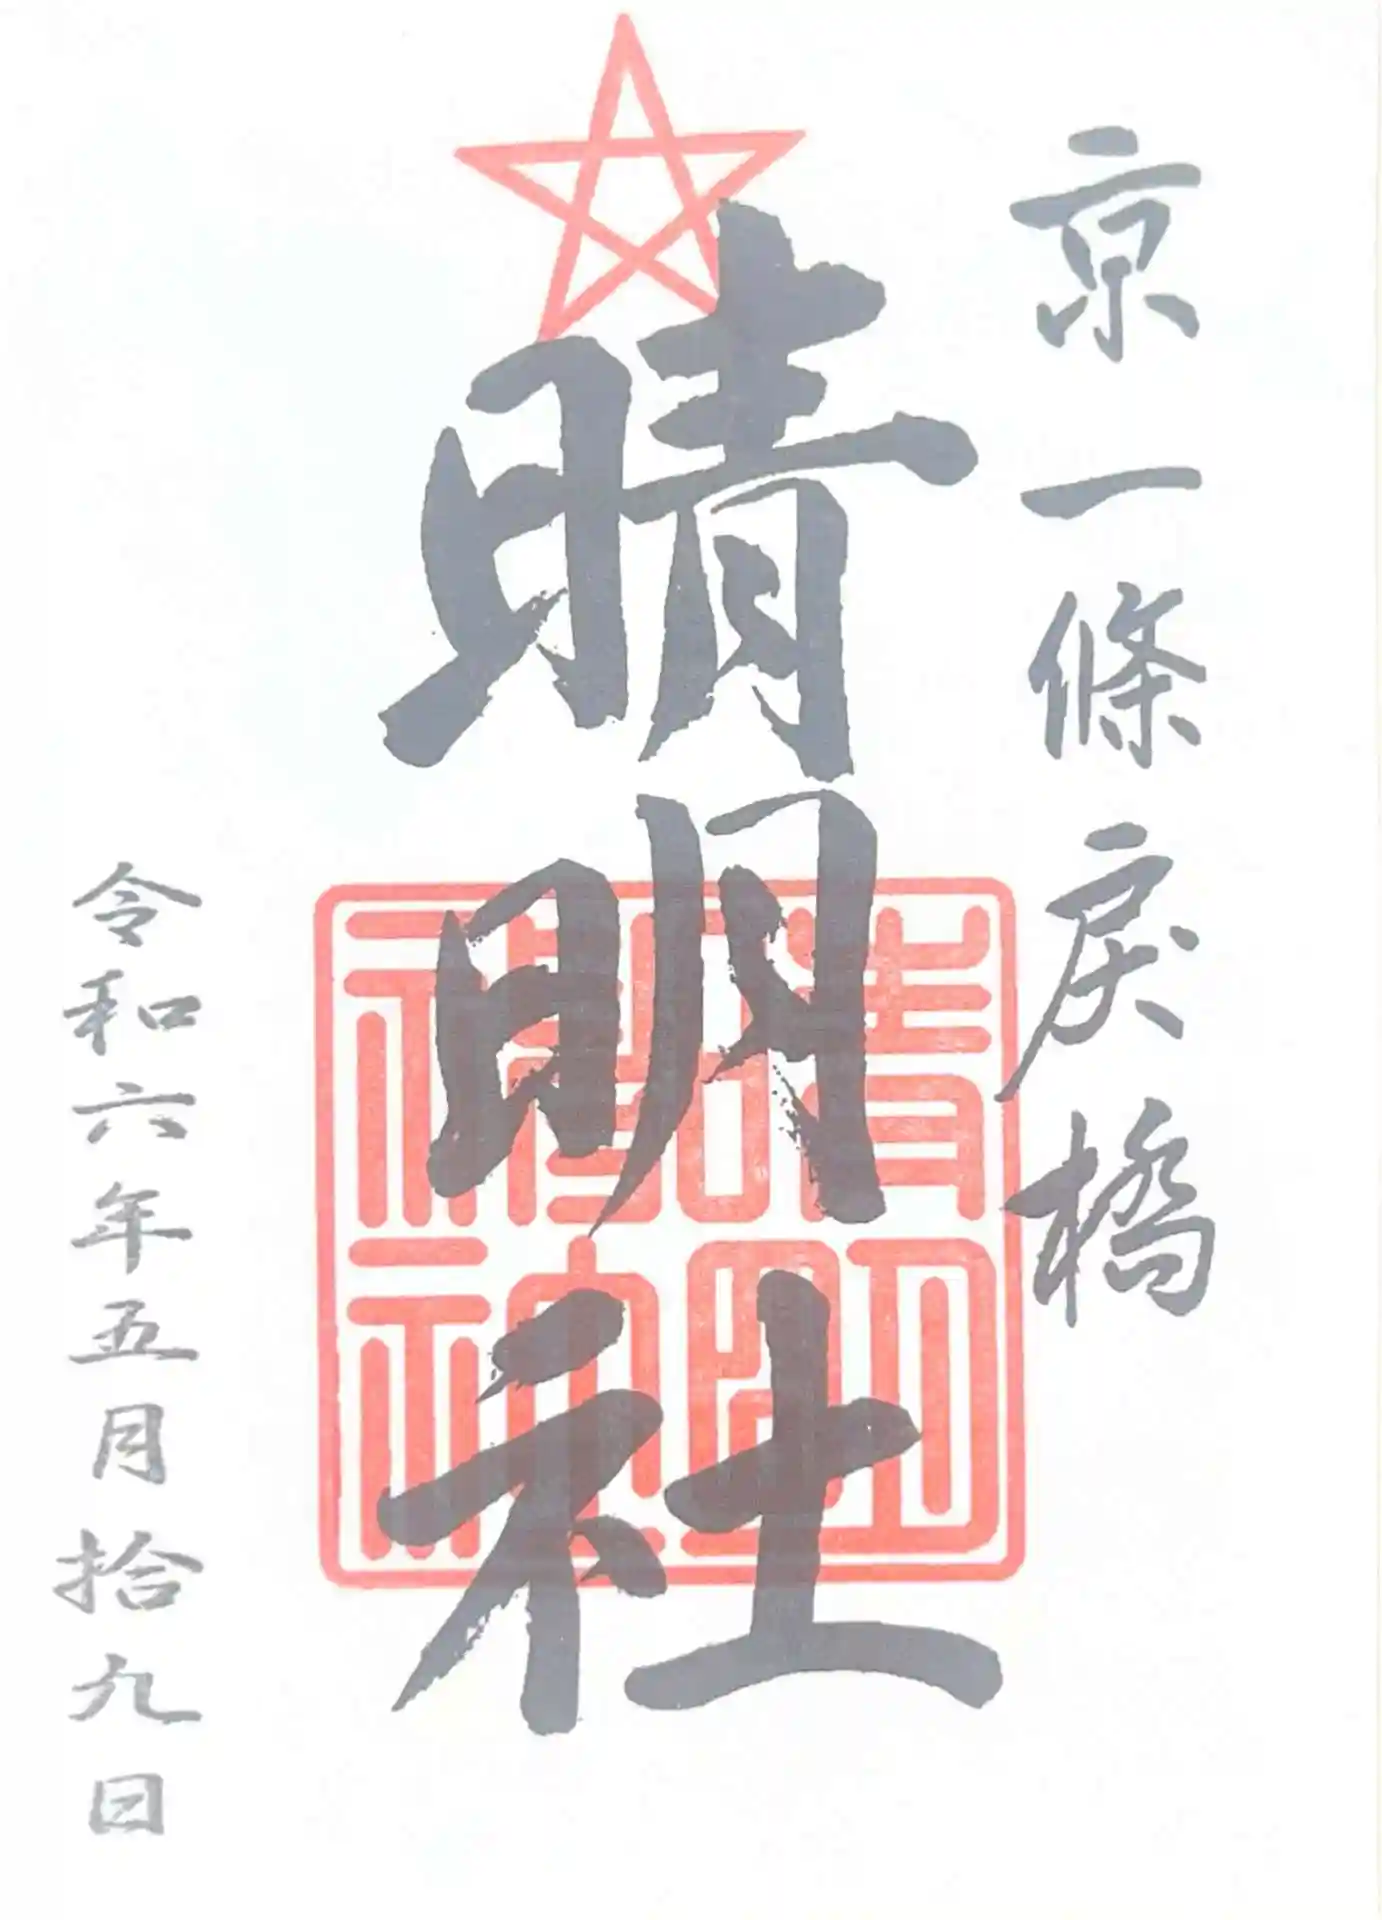 京一條戻橋
晴明社
晴明神社
令和六年五月拾九日